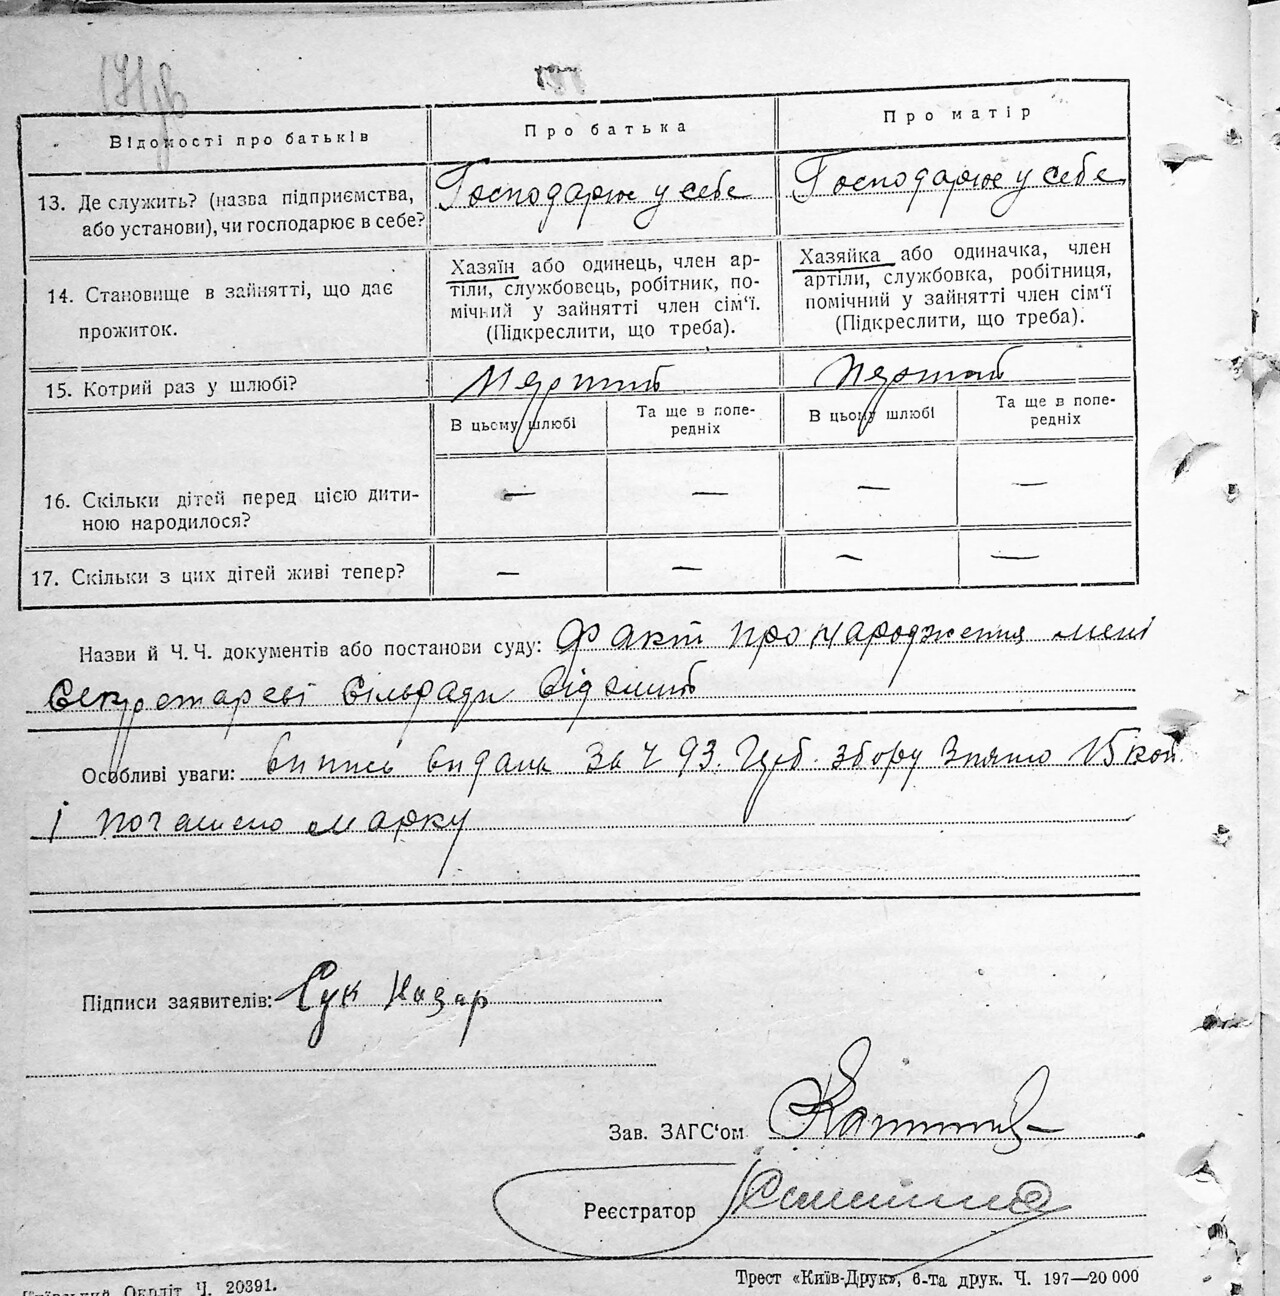 Відомості про батьків
Про батька
Про матір
13. Де служить? (назва підприємства,
або установи), чи господарює в себе?
Господарює у себе
Господарює у себе
14. Становище в зайнятті, що дає
прожиток.
Хазяїн або одинець, член ар-
тіли, службовець, робітник, по-
мічний у зайнятті член сім‘ї.
(Підкреслити, що треба).
Хазяйка або одиначка, член
артіли, службовка, робітниця,
помічний у зайнятті член сім‘ї
(Підкреслити, що треба).
15. Котрий раз у шлюбі?
Перший
Перший
В цьому шлюбі
Та ще в попе-
редніх
В цьому шлюбі
Та ще в попе-
редніх
16. Скільки дітей перед цією дити-
ною народилося?
— — — —
17. Скільки з цих дітей живі тепер?
— — — —
Назви й Ч.Ч. документів або постанови суду: Факт про народження мені
секретареві сільради відомий
Особливі уваги: Випись видана за ч 93. Герб. збору знято 15 коп.
і погашено марку
Підписи заявителів: Сук Назар
Зав. ЗАГС‘ом
Реєстратор
Окрліт Ч. 20391.
Трест «Київ-Друк», 6-та друк. Ч. 197—20 000